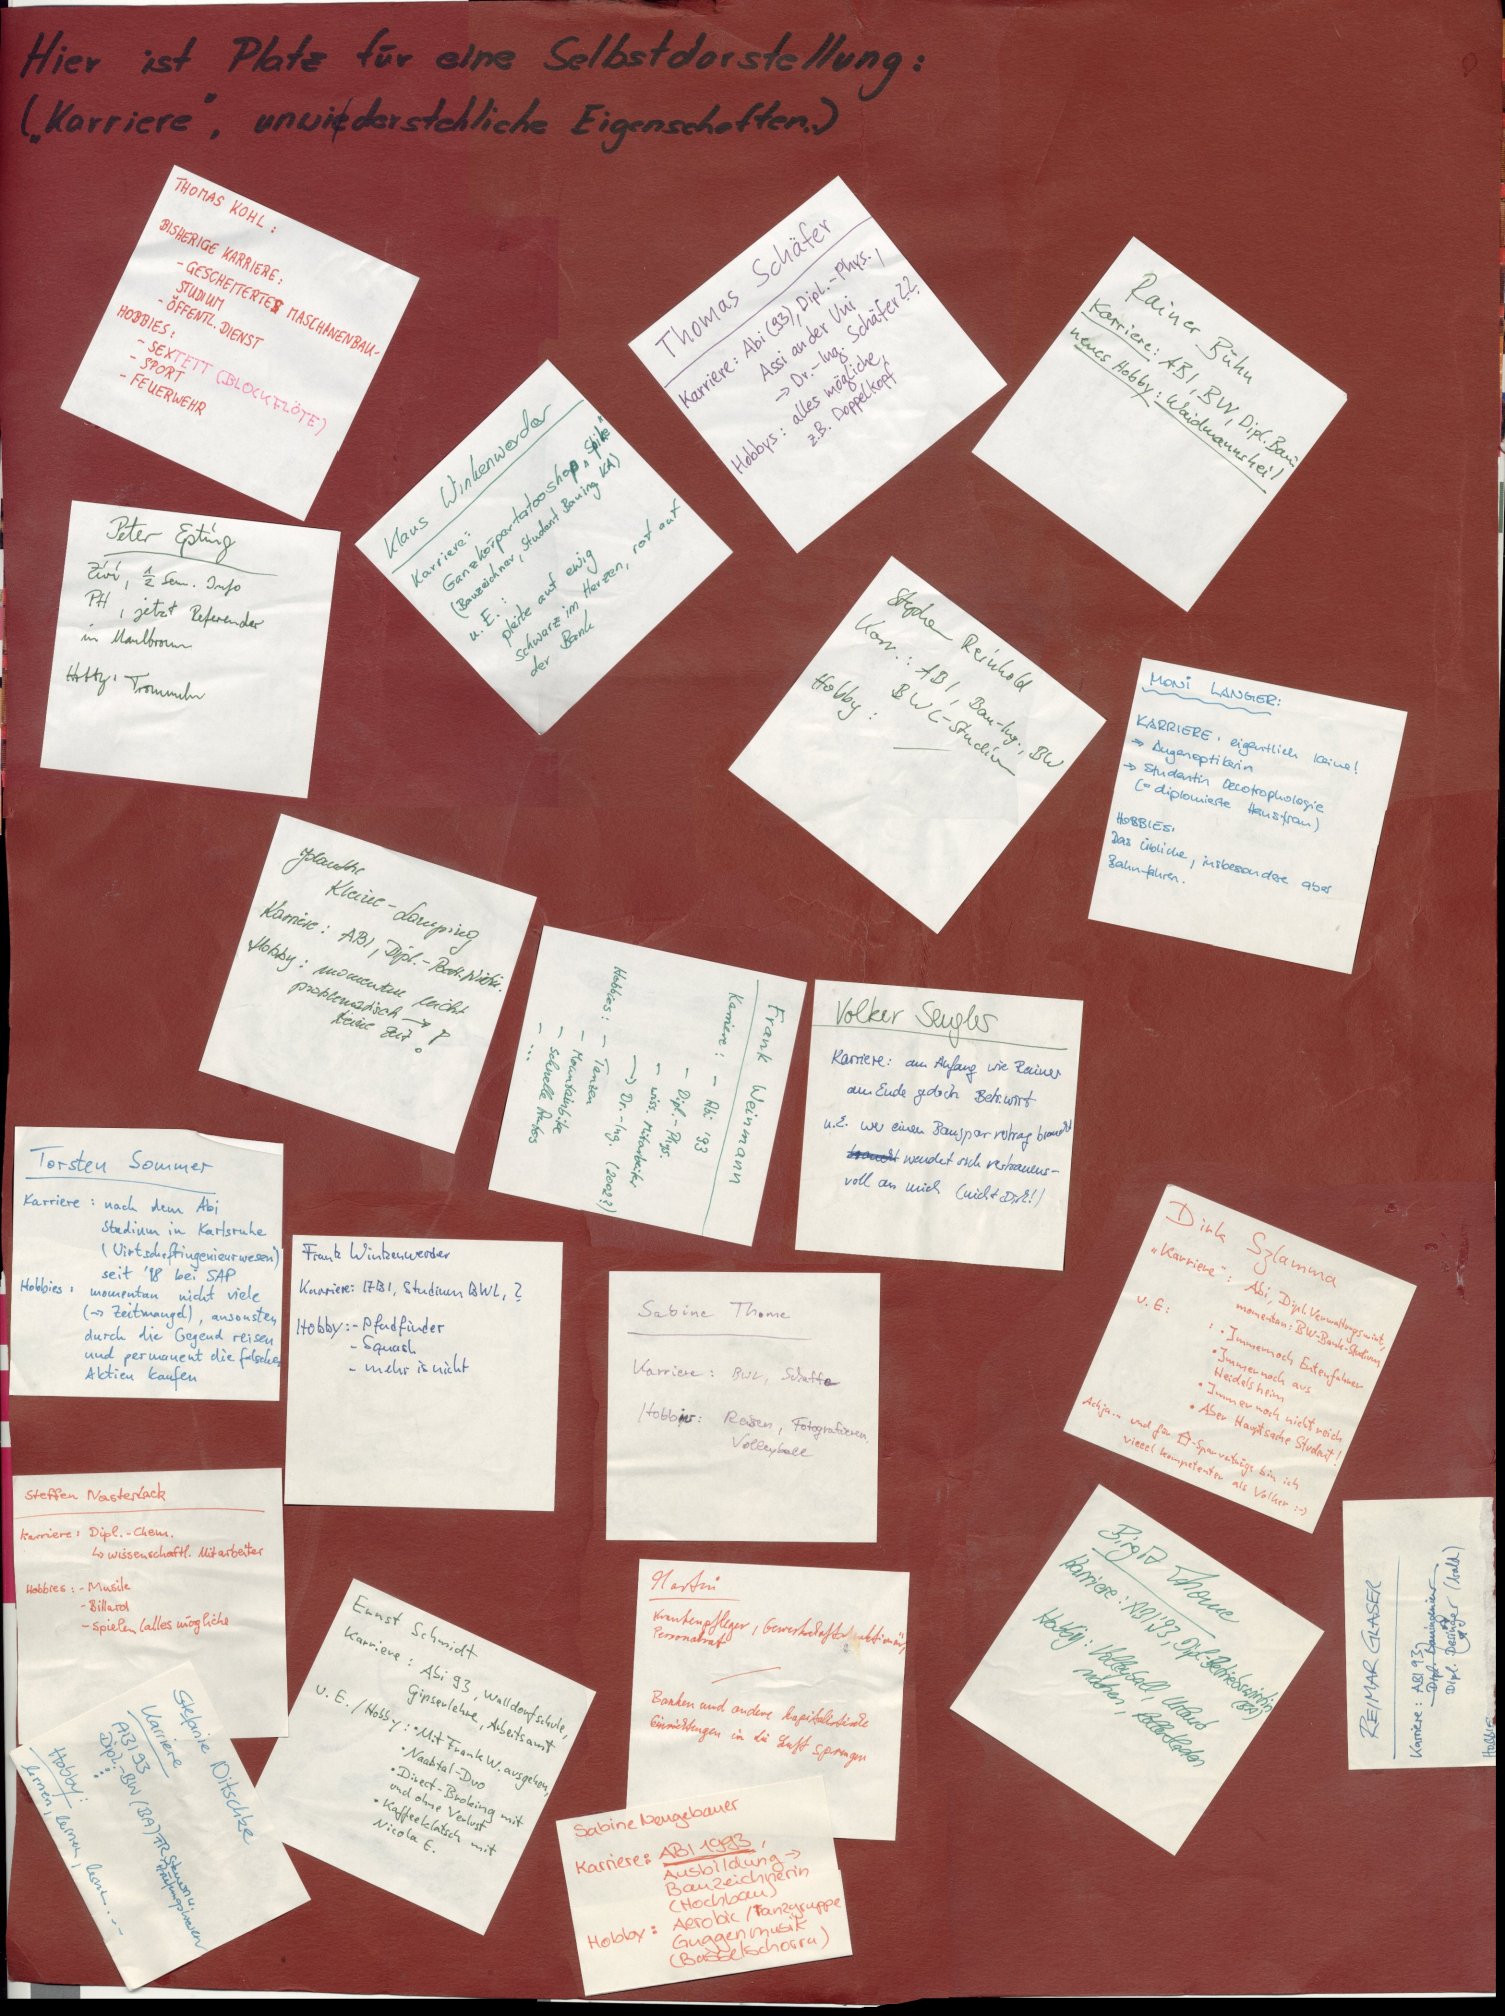 Hier ist Platz für eine Selbstdarstellung:
("Karriere", unwiederstehliche Eigenschaften..)
THOMAS KOHL:
BISHERIGE KARRIERE:
- GESCHEITERTES MASCHINENBAU-
STUDIUM
- ÖFFENTL. DIENST
HOBBIES:
- SEXTETT (BLOCKFLÖTE)
- SPORT
- FEUERWEHR
Thomas Schäfer
Karriere: Abi (93), Dipl.-Phys.,
Assi an der Uni
→ Dr.-Ing. Schäfer??
Hobbys: alles mögliche,
z.B. Doppelkopf
Rainer Bühn
Karriere: ABI, BW, Dipl. Bau
neues Hobby: Waidmannsheil
Klaus Winkenwerder
Karriere:
Ganzkörpertattooshop "Spike"
(Bauzeichner, Student Bauing KA)
u. E.:
pleite auf ewig
schwarz im Herzen, rot auf
der Bank
Peter Epting
Zivi, 1/2 Sem. Info
PH, jetzt Referendar
in Maulbronn
Hobby: Trommeln
Stephan Reinhold
Karr.: ABI, Bau-Ing., BW
BWL-Studium
Hobby: —
MONI LANGER:
KARRIERE: eigentlich keine!
→ Augenoptikerin
→ Studentin Oecotrophologie
(= diplomierte Hausfrau)
HOBBIES:
Das übliche, insbesondere aber
Bahnfahren.
Kleine-Lamping
Karriere: ABI, Dipl.-
Hobby: momentan leicht
problematisch →
keine Zeit!
Frank Weinmann
Karriere: - Abi '93
- Dipl.-Phys.
- wiss. Mitarbeiter
→ Dr.-Ing. (2002?)
Hobbies: - Tanzen
- Mountainbike
- schnelle Autos
- ...
Volker Sengler
Karriere: am Anfang wie Rainer
am Ende jedoch Betr.wirt
u.E. wer einen Bausparvertrag braucht
wendet sich vertrauens-
voll an mich (nicht Dirk!)
Torsten Sommer
Karriere: nach dem Abi
Studium in Karlsruhe
(Wirtschaftingenieurwesen)
seit '98 bei SAP
Hobbies: momentan nicht viele
(→ Zeitmangel), ansonsten
durch die Gegend reisen
und permanent die falschen
Aktien kaufen
Frank Winkenwerder
Karriere: ABI, Studium BWL, ?
Hobby: - Pfadfinder
- Squash
- mehr is nicht
Sabine Thome
Karriere: BWL, Schaffe
Hobbies: Reisen, Fotografieren,
Volleyball
Dirk Szlamma
"Karriere": Abi, Dipl. Verwaltungswirt,
momentan: BW-Bank-Studium
u. E.:
• Immernoch Entenfahrer
• Immernoch aus
Heidelsheim
• Immernoch nicht reich
• Aber Hauptsache Student!
Achja... und für -Sparverträge bin ich
vieeel kompetenter als Volker :-)
Steffen Nasterlack
Karriere: Dipl.-Chem.
↳ wissenschaftl. Mitarbeiter
Hobbies: - Musik
- Billard
- Spielen (alles mögliche
Ernst Schmidt
Karriere: Abi 93, Walldorfschule,
Gipserlehre, Arbeitsamt
u. E. / Hobby: • Mit Frank W. ausgehen,
• Naabtal-Duo
• Direct-Broking mit
und ohne Verlust
• Kaffeeklatsch mit
Nicola E.
Martin
Krankenpfleger, Gewerkschaftsfunktionär,
Personalrat
Banken und andere kapitalistische
Einrichtungen in die Luft sprengen
Birgit Thome
Karriere: ABI '93, Dipl.-Betriebswirtin
(BA)
Hobby: Volleyball, Urlaub
nähen,
REIMAR GLASER
Karriere: ABI 93
Dipl. Bauingenieur
Dipl. Designer (bald)
Hobbie
Stefanie Nitschke
Karriere
ABI 93
Dipl.-BW (BA) FR Steuern u.
Prüfungswesen
Hobby:
lernen, lernen, lernen...
Sabine Neugebauer
Karriere: ABI 1993,
Ausbildung →
Bauzeichnerin
(Hochbau)
Hobby: Aerobic / Tanzgruppe
Guggenmusik
(Basselschorra)